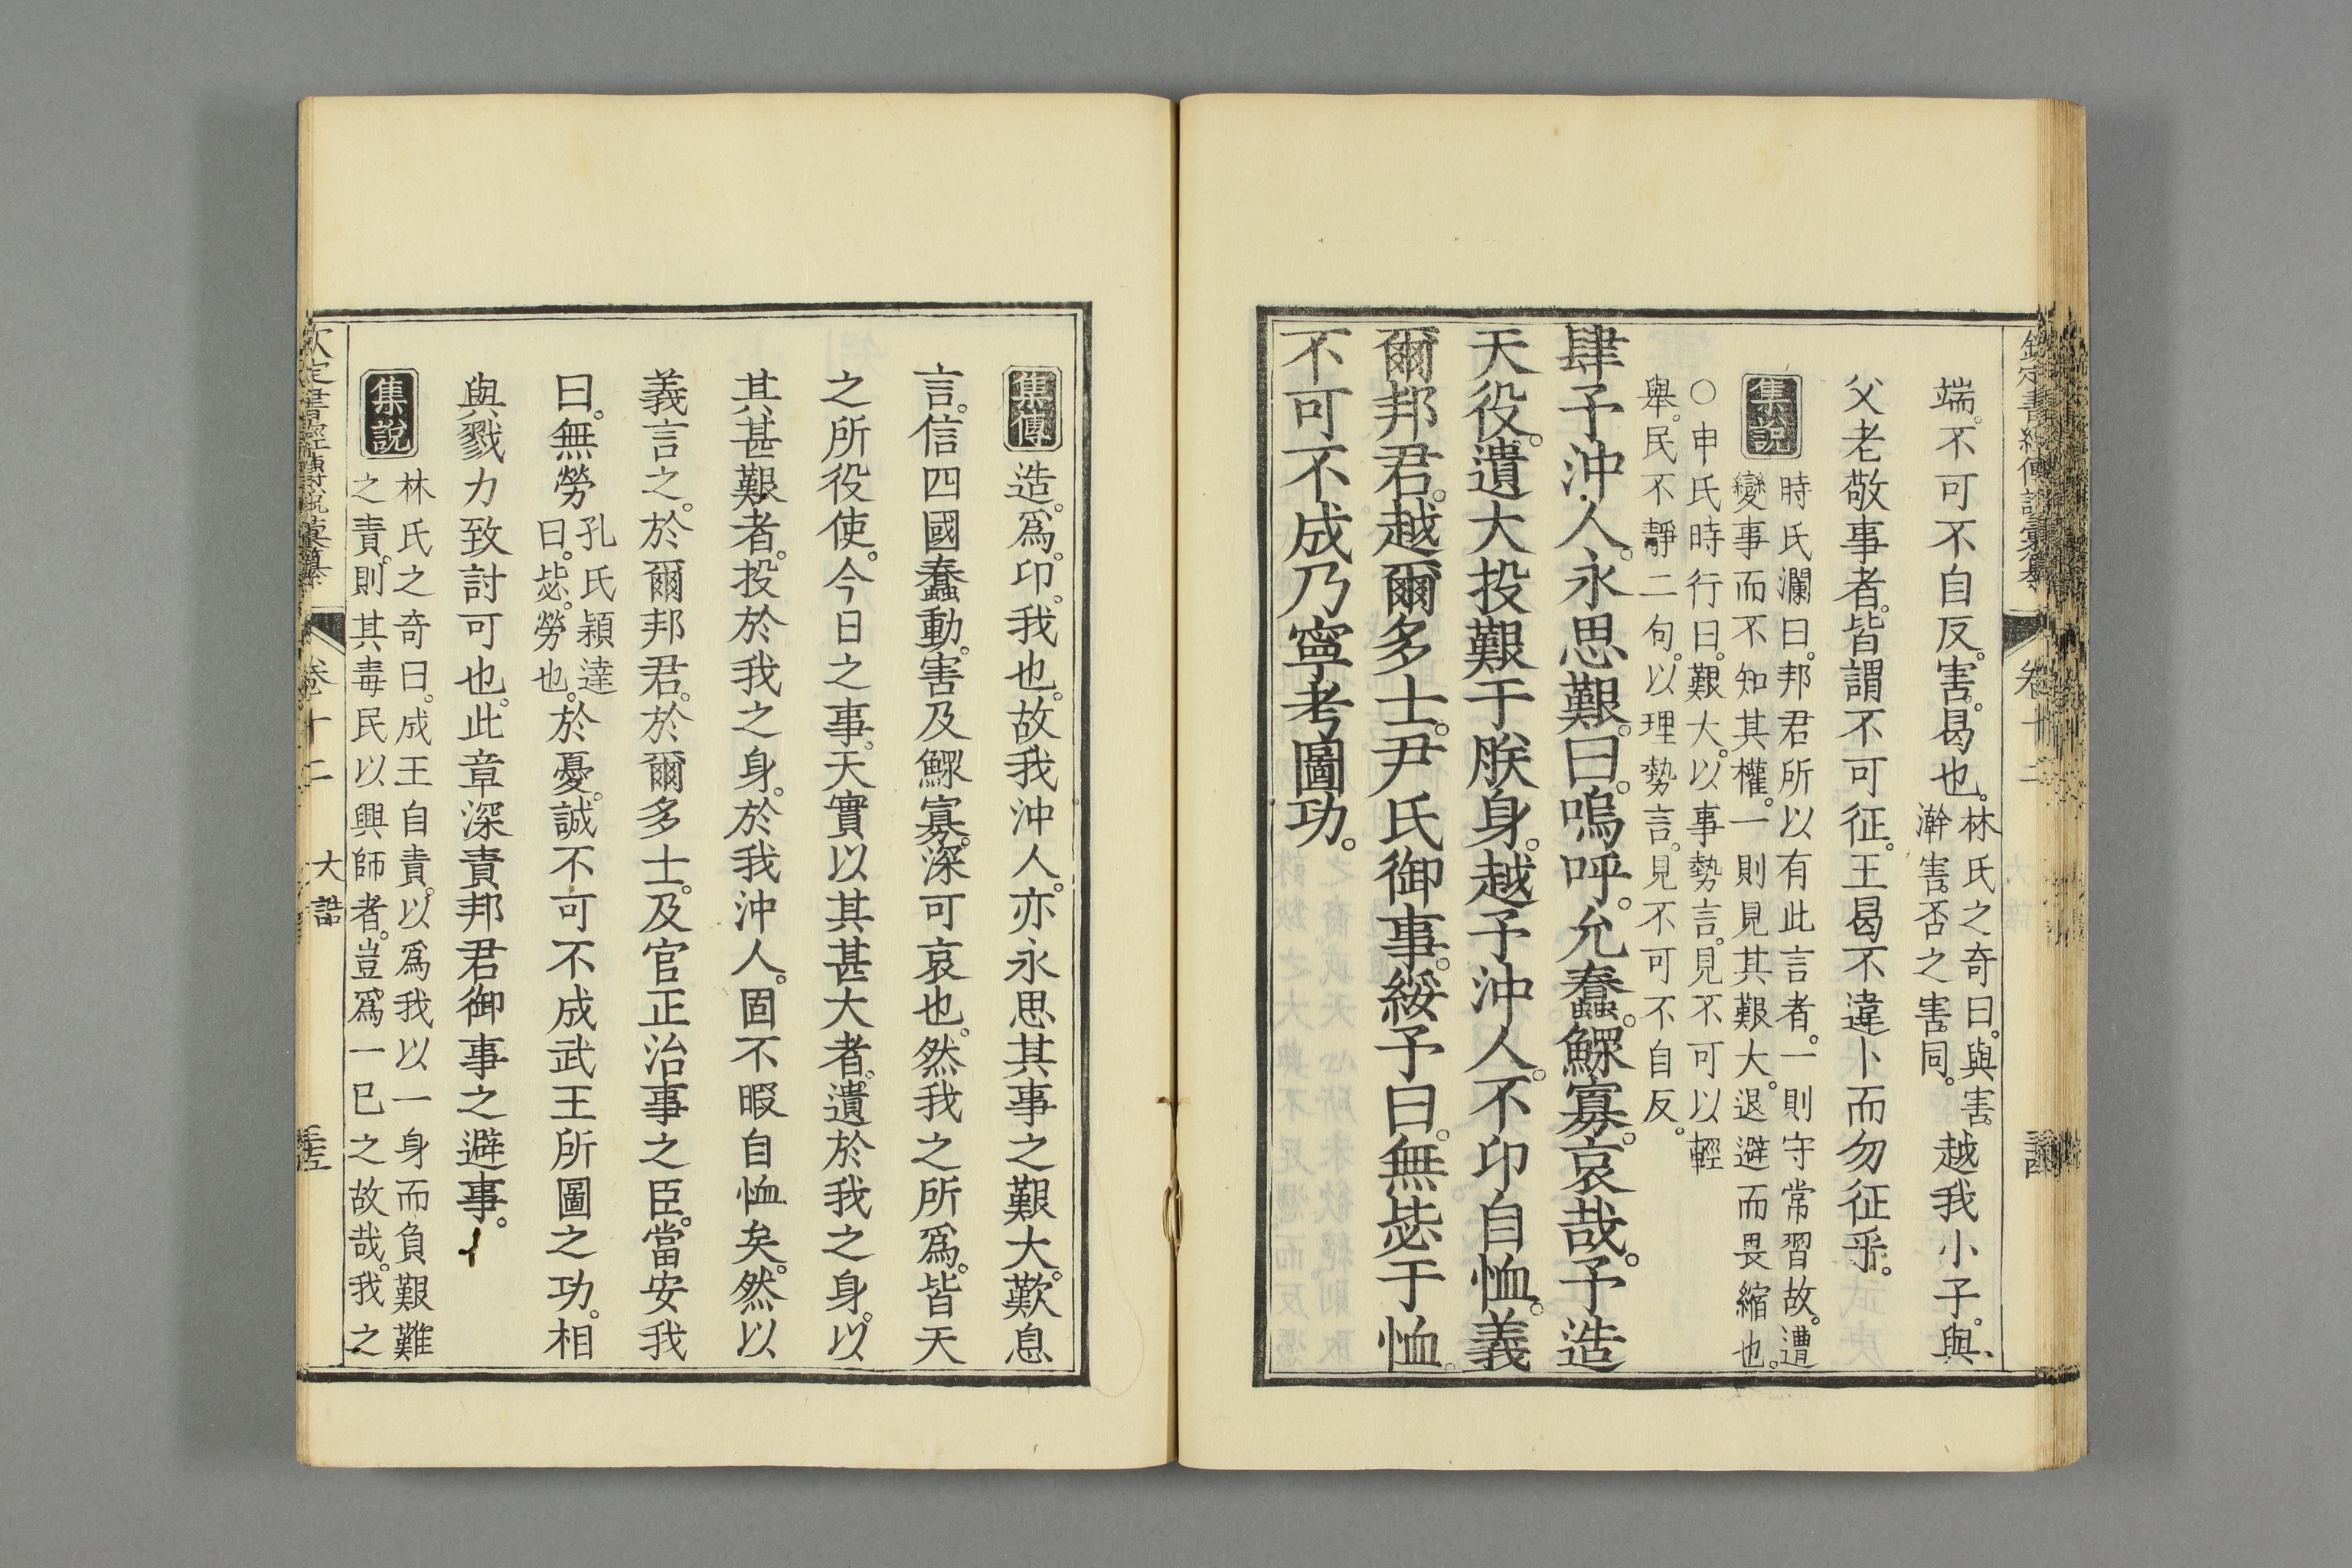 端。不可不自反。害。曷也。林氏之奇曰。與害。
澣害否之害同。越我小子。與
父老敬事者。皆謂不可征。王曷不違卜而勿征乎。
集說
時氏瀾曰。邦君所以有此言者。一則守常習故。遭
變事而不知其權。一則見其艱大。退避而畏縮也。
○申氏時行曰。艱大。以事勢言。見不可以輕
舉。民不靜二句。以理勢言。見不可不自反。
肆予沖人。永思艱。曰。嗚呼。允蠢。鰥寡。哀哉。予造
天役。遺大投艱于朕身。越予沖人。不卬自恤。義
爾邦君。越爾多士。尹氏御事。綏予曰。無毖于恤。
不可不成乃寧考圖功。
集傳
造。爲。卬。我也。故我沖人。亦永思其事之艱大。歎息
言。信四國蠢動。害及鰥寡。深可哀也。然我之所爲。皆天
之所役使。今日之事。天實以其甚大者。遺於我之身。以
其甚艱者。投於我之身。於我沖人。固不暇自恤矣。然以
義言之。於爾邦君。於爾多士。及官正治事之臣。當安我
曰。無勞
孔氏穎達
曰。毖。勞也。
於憂。誠不可不成武王所圖之功。相
與戮力致討可也。此章深責邦君御事之避事。
集說
林氏之奇曰。成王自責。以爲我以一身而負艱難
之責。則其毒民以興師者。豈爲一已之故哉。我之
欽定書經傳說彙纂
卷十二
大誥